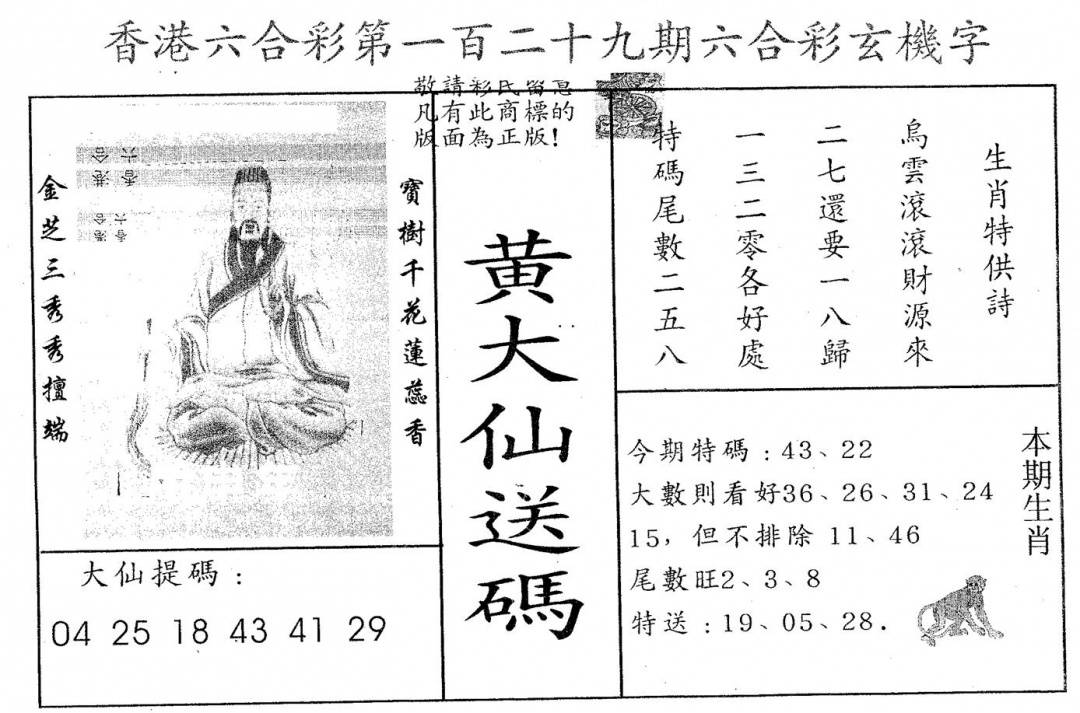 香港六合彩第一百二十九期六合彩玄機字
敬請彩民留意
凡有此商標的
版面為正版!
生肖特供詩
烏雲滾滾財源來
二七還要一八歸
一三二零各好處
特碼尾數二五八
寶樹千花蓮蕊香
金芝三秀秀擅端
黃大仙送碼
大仙提碼:
04 25 18 43 41 29
本期生肖
今期特碼:43、22
大數則看好36、26、31、24
15,但不排除 11、46
尾數旺2、3、8
特送:19、05、28.